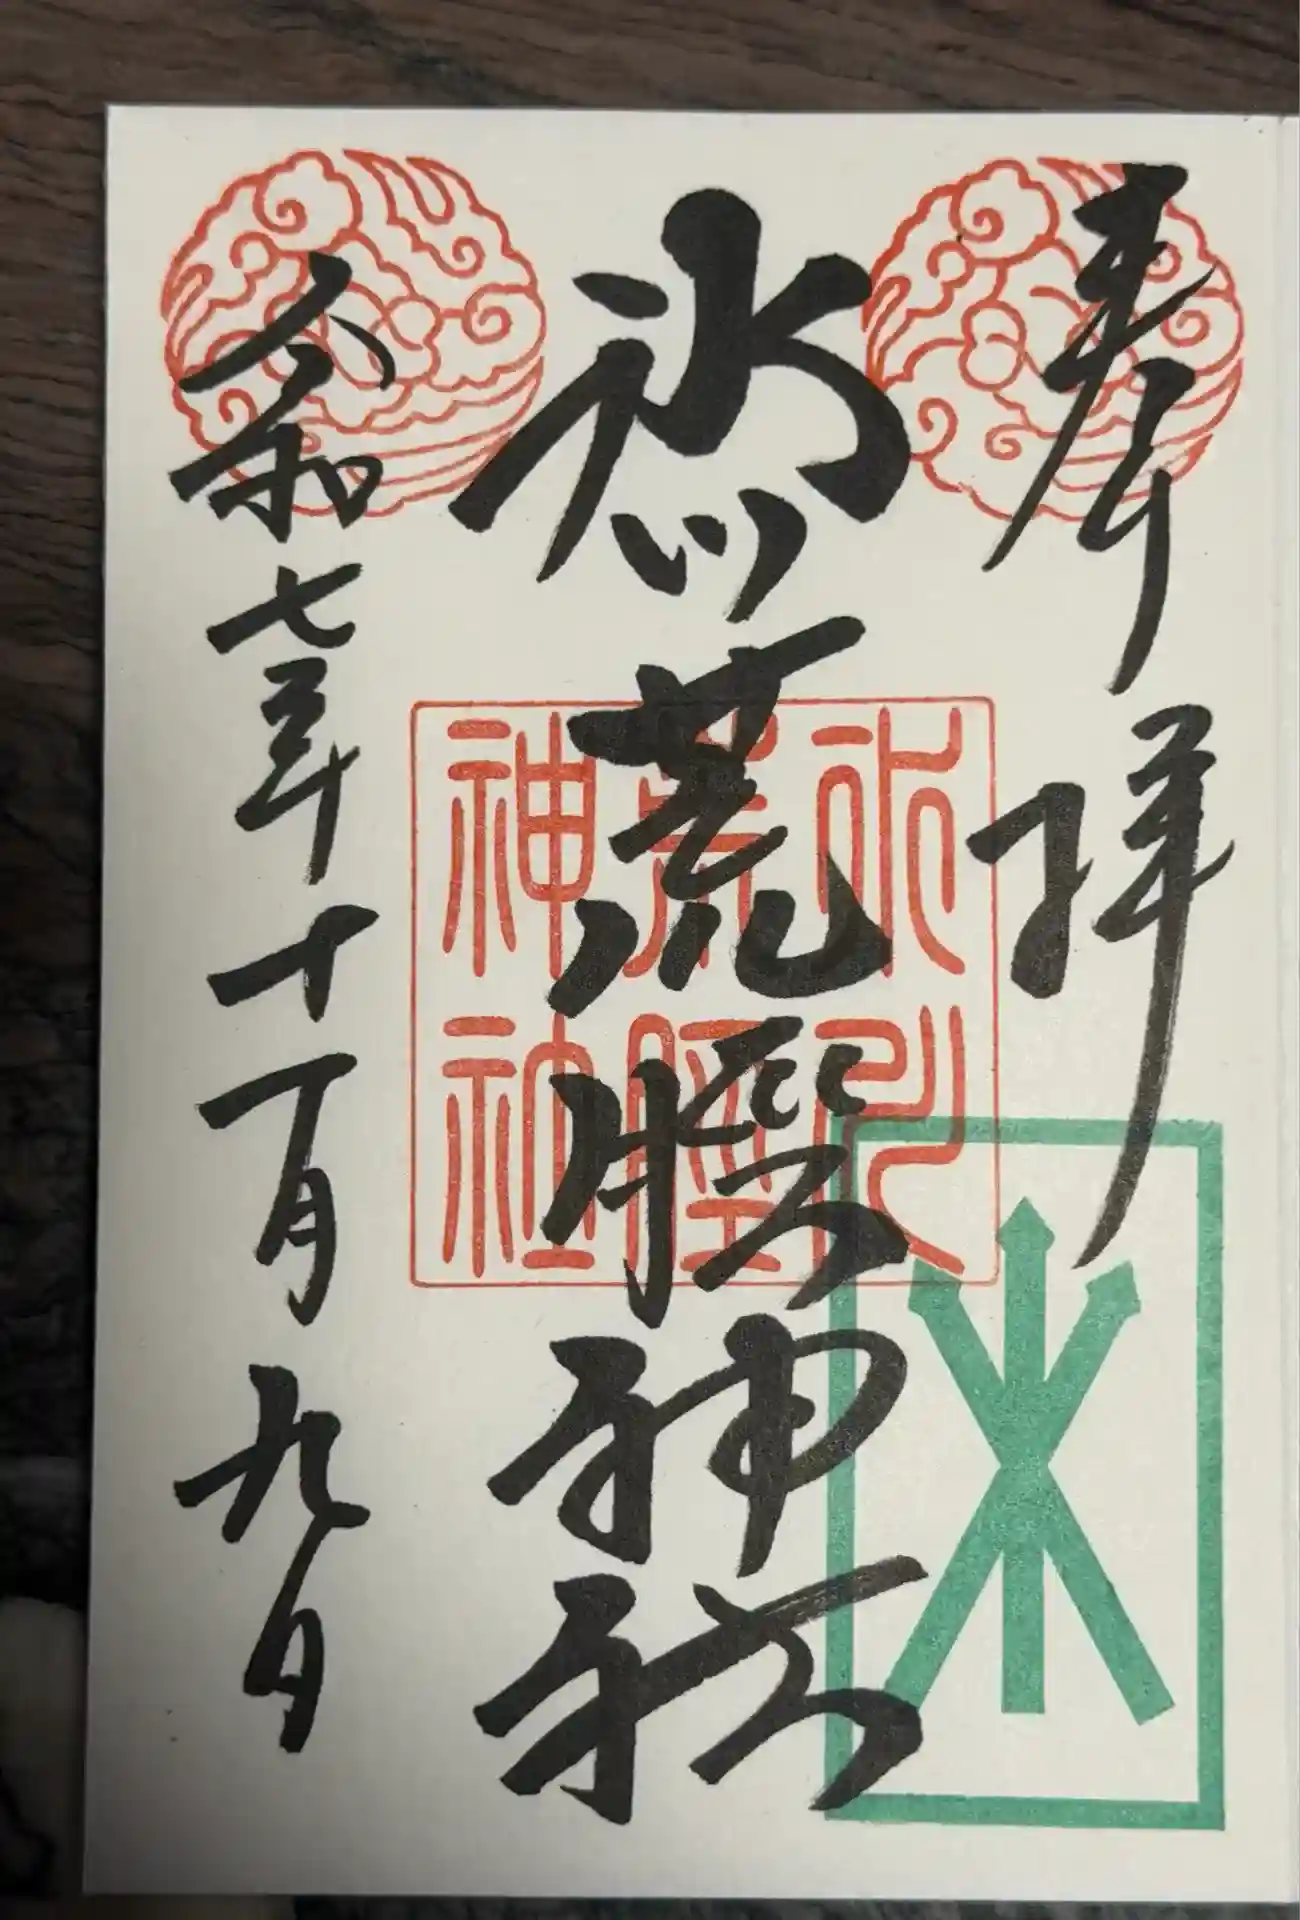 奉拝
氷川荒脛神社
令和七年十一月九日
神社